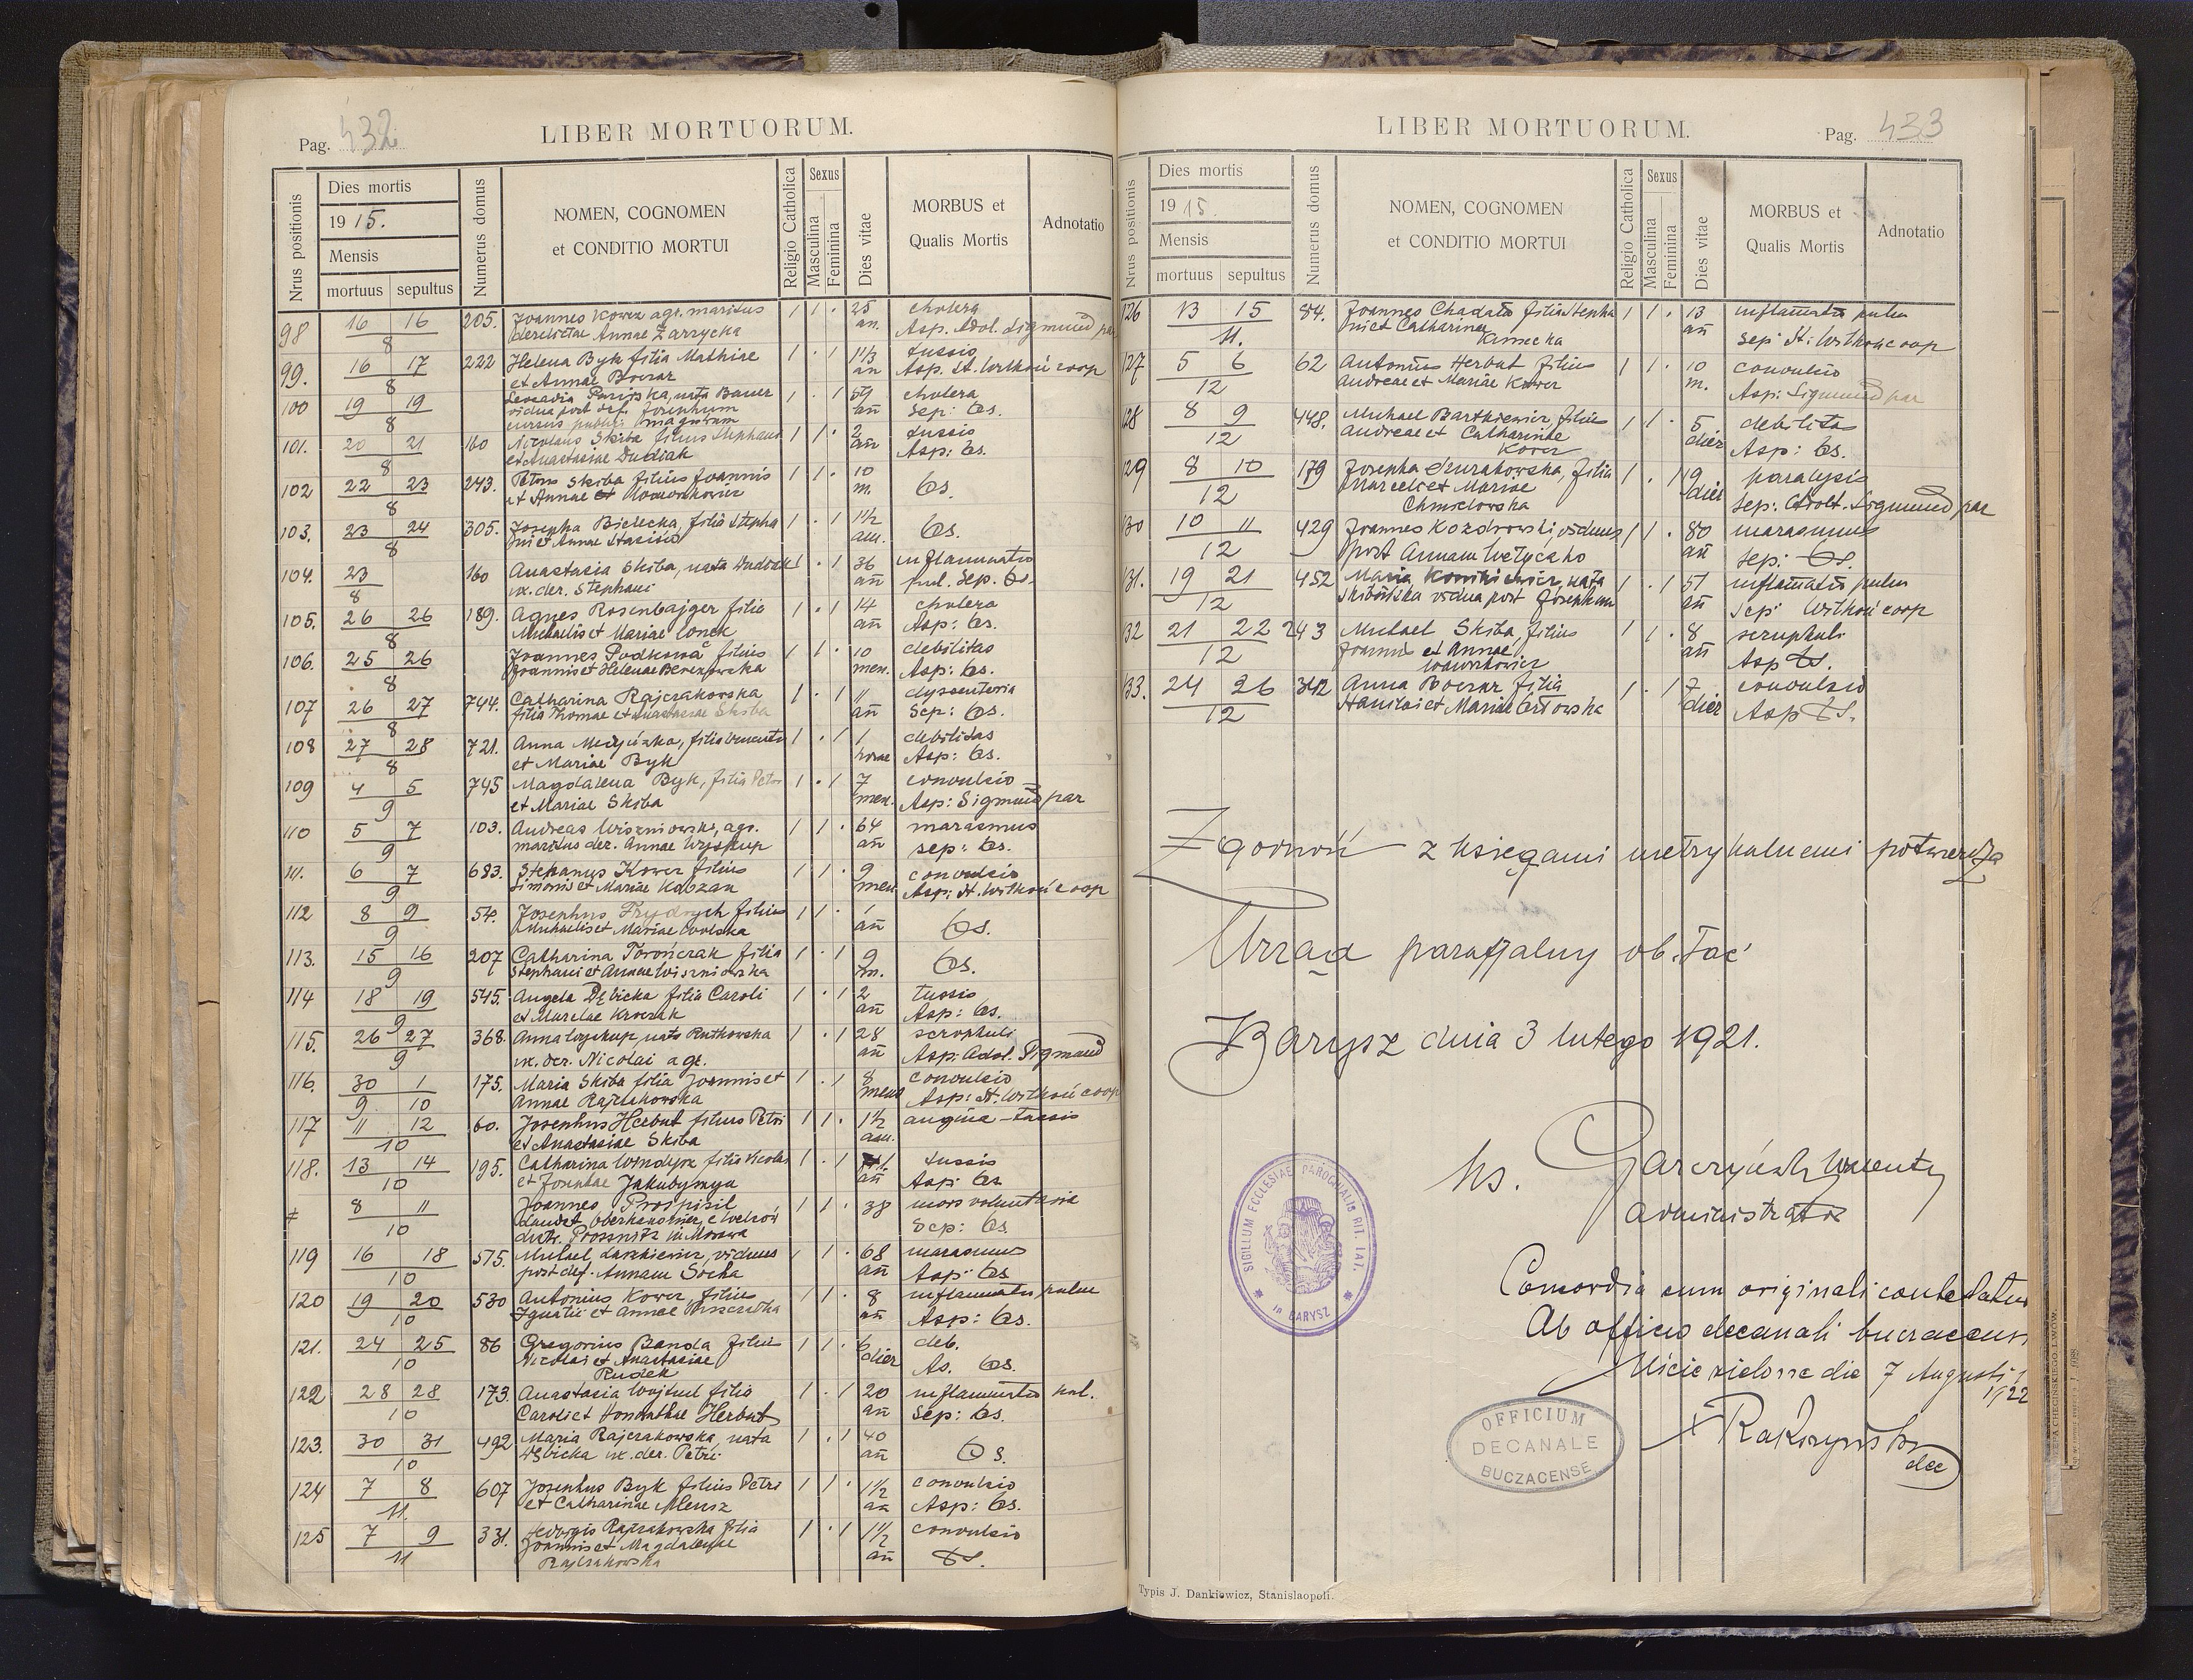 Pag. 432
LIBER MORTUORUM.
Nrus positionis
Dies mortis
1915.
Mensis
mortuus sepultus
Numerus domus
NOMEN, COGNOMEN
et CONDITIO MORTUI
Religio Catholica
Sexus
Masculina
Feminina
Dies vitae
MORBUS et
Qualis Mortis
Adnotatio
98 16 16 205. Joannes Kower agr. maritus 1 1 . 25 cholera
8 Benedictae Annae Zarzycka an. Asp. Adol. Sigmund par
99. 16 17 222 Helena Byk filia Mathiae 1 . 1 1 1/3 tussis
8 et Annae Boczar an Asp. St. Witkoń coop
100 19 19 Leocadia vidua post def. Josephum 1 . 1 59 cholera
8 cursus publ. magistrum añ Sep: Os.
101. 20 21 160 Nicolaus Skiba filius Stephani 1 1 . 2 tussis
8 et Anastasiae Dudiak añ Asp: Os.
102 22 23 243. Petrus Skiba filius Joannis 1 1 . 10
8 et Annae m. Os.
103. 23 24 305. Josepha Bielecka, filia Stepha 1 . 1 1 1/2
8 ni et Annae Stasisin ann. Os.
104. 23 160 Anastasia Skiba, nata Dudiak 1 . 1 36 inflammatio
8 ux. der. Stephani añ pul. Sep. Os.
105. 26 26 189. Agnes Rosenbajger filia 1 . 1 14 cholera
8 Michaelis et Mariae Conek añ Asp: Os.
106. 25 26 Joannes Podkowa filius 1 1 . 10 debilitas
8 Joannis et Helenae Berezowska men. Asp: Os.
107 26 27 744. Catharina Rajczakowska 1 . 1 11 dyssenteria
8 filia Thomae et Anastasiae Skiba añ Sep: Os.
108 27 28 721. Anna filia Vincentii 1 . 1 1 debilitas
8 et Mariae Byk horae Asp: Os.
109 4 5 745 Magdalena Byk, filia Petri 1 . 1 7 convulsio
9 et Mariae Skiba men. Asp: Sigmund par
110 5 7 103. Andreas Wiszniowski, agr. 1 1 . 64 marasmus
9 maritus der. Annae Wyskup añ sep: Os.
111. 6 7 683. Stephanus Kower filius 1 1 . 9 convulsio
9 Simonis et Mariae Kobzan men Asp: St. Witkoń coop
112 8 9 54. Josephus Frydrych filius 1 1 . 1
9 Michaelis et Mariae Wolska añ Os.
113. 15 16 207 Catharina Torończak filia 1 . 1 9
9 Stephani et Annae Wiszniowska m. Os.
114 18 19 545. Angela Dębicka filia Caroli 1 . 1 2 tussis
9 et Marelae Kroczak añ Asp: Os.
115. 26 27 368. Anna Wyskup, nata Rutkowska 1 . 1 28 scrophuli
9 ux. der. Nicolai agr. añ Asp: Adol. Sigmund
116. 30 1 175. Maria Skiba filia Joannis et 1 . 1 8 convulsio
9 10 Annae Rajczakowska mens Asp: St. Witkoń coop
117 11 12 60. Josephus Herbut filius Petri 1 1 . 1 1/2 angina - tussis
10 et Anastasiae Skiba ann.
118. 13 14 195. Catharina Wyndyk filia Nicolai 1 . 1 tussis
10 et Josephae Jakubymyn añ Asp: Os
8 11 Joannes Prospisil 1 1 . 38 mors voluntaria
10 Sep: Os.
distr. Prossnitz in Morawa
119 16 18 575. Michael Laszkiewicz, viduus 1 1 . 68 marasmus
10 post def. Annam Socha añ Asp: Os
120 19 20 530 Antonius Kower, filius 1 1 . 8 inflammatio pulm
10 Ignatii et Annae añ Asp: Os.
121. 24 25 86 Gregorius Banda filius 1 1 . 6 deb.
10 Nicolai et Anastasiae dier As. Os.
Rudek
122 28 28 173. Anastasia Wojtul filia 1 . 1 20 inflammatio pul.
10 Caroli et Honorathae Herbut añ Sep: Os.
123. 30 31 492 Maria Rajczakowska, nata 1 . 1 40
10 Dębicka ux. der. Petri añ Os.
124 7 8 607 Josephus Byk filius Petri 1 1 . 1 1/2 convulsio
11. et Catharinae Mensz an Asp: Os.
125 7 9 331. Hedvigis Rajczakowska filia 1 . 1 1 1/2 convulsio
11 Joannis et Magdalenae añ Os.
Rajczakowska
LIBER MORTUORUM.
Pag. 433
Nrus positionis
Dies mortis
1915
Mensis
mortuus sepultus
Numerus domus
NOMEN, COGNOMEN
et CONDITIO MORTUI
Religio Catholica
Sexus
Masculina
Feminina
Dies vitae
MORBUS et
Qualis Mortis
Adnotatio
126 13 15 84. Joannes Chadala filius Stepha 1 1 . 13 inflamatio pulm
11. ni et Catharinae añ Sep: St: Witkoń coop
127 5 6 62 Antonius Herbut filius 1 1 . 10 convulsio
12 Andreae et Mariae Kower m. Asp: Sigmund par
128 8 9 448. Michael Bartkiewicz, filius 1 1 . 5 debilitas
12 Andreae et Catharinae dier Asp: Os.
Kower
129 8 10 179 Josepha filia 1 . 1 9 paralysis
12 Marceli et Mariae dier Sep: Adolf. Sigmund par
Chmielowska
130 10 11 429 Joannes Kozdrowski, viduus 1 1 . 80 marasmus
12 post Annam Wełyczko añ Sep: Os.
131. 19 21 452 Maria nata 1 . 1 51 inflamatio pulm
12 Skibińska vidua post Josephum añ Sep: Witkoń coop
132 21 22 243 Michael Skiba, filius 1 1 . 8 scruphuli
12 Joannis et Annae añ Asp Os.
133. 24 26 342 Anna Boczar filia 1 . 1 7 convulsio
12 Stanilai et Mariae Orłowska dier Asp Os.
Zgodność z księgami metrykalnemi potwierdza
Urząd parafjalny ob. łać
Barysz dnia 3 lutego 1921.
ks. Garczyński Wincenty
Administrator
SIGILLUM ECCLESIAE PAROCHIALIS RIT. LAT.
in BARYSZ
Concordia cum originali contestatur
Ab officio decanali buczacensi
Uście zielone die 7 Augusti
1922
OFFICIUM
DECANALE
BUCZACENSE
dec
Typis J. Dankiewicz, Stanislaopoli.